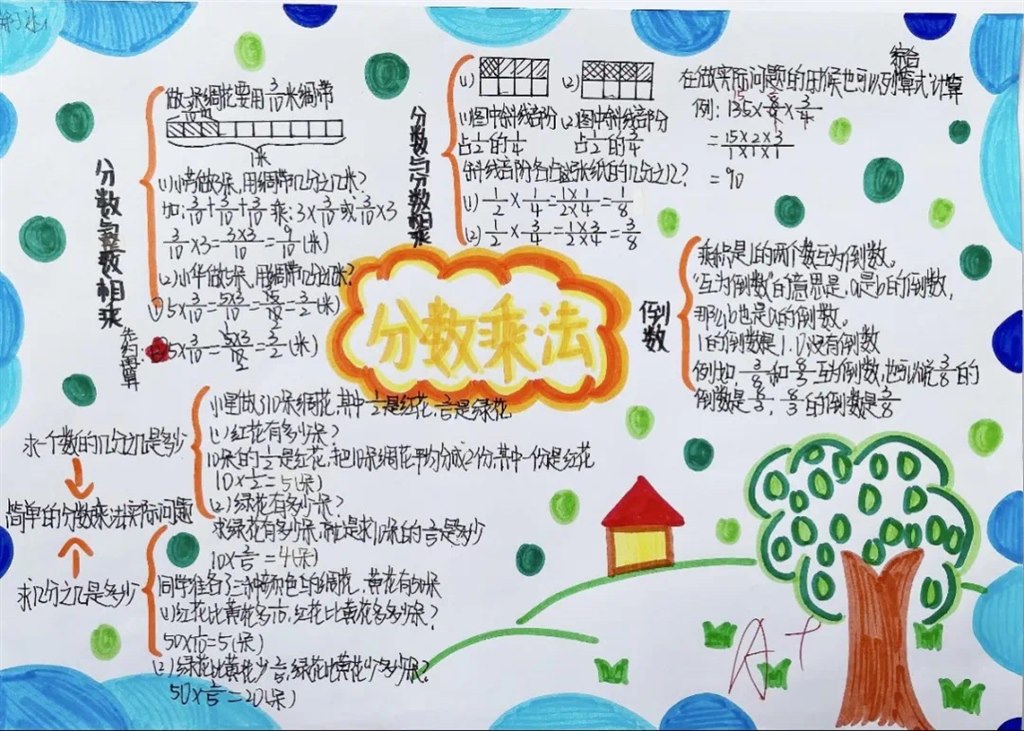 分数与整数相乘
做一朵绸花要用3/10米绸带
1米
(1)小芳做3朵,用绸带几分之几米?
加:3/10+3/10+3/10 乘:3×3/10或3/10×3
3/10×3=3×3/10=9/10(米)
(2)小华做5朵,用绸带几分之几米?
①5×3/10=5×3/10=15/10=3/2(米)
5×3/10=5×3/10=3/2(米)
先约算
分数与分数相乘
(1) (2)
(1)图中斜线部份 (2)图中斜线部份
占1/2的1/4 占1/2的3/4
斜线部份各占这张纸的几分之几?
(1) 1/2×1/4=1×1/2×4=1/8
(2) 1/2×3/4=1×3/2×4=3/8
综合
在做实际问题的时候也可以列算式计算
例:135×8/9×3/4
=15×2×3/1×1×1
=90
分数乘法
倒数
乘积是1的两个数互为倒数。
“互为倒数”的意思是:a是b的倒数,
那么b也是a的倒数。
1的倒数是1.0没有倒数
例如 3/8和8/3互为倒数,也可以说3/8的
倒数是8/3,8/3的倒数是3/8
求一个数的几分之几是多少
简单的分数乘法实际问题
求几分之几是多少
小星做了10朵绸花,其中1/2是红花,2/5是绿花
(1)红花有多少朵?
10朵的1/2是红花,把10朵绸花平均分成2份,其中一份是红花
10×1/2=5(朵)
(2)绿花有多少朵?
求绿花有多少朵,就是求10朵的2/5是多少
10×2/5=4(朵)
同学准备了三种颜色的绸花,黄花有50朵
(1)红花比黄花多1/10,红花比黄花多多少朵?
50×1/10=5(朵)
(2)绿花比黄花少2/5,绿花比黄花少多少朵?
50×2/5=20(朵)
A+